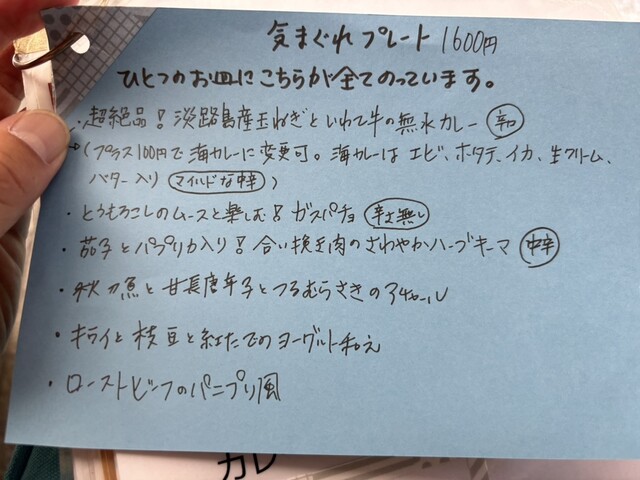 気まぐれプレート 1600円
ひとつのお皿にこちらが全てのっています。
・超絶品！淡路島産玉ねぎといわて牛の無水カレー 辛
→(プラス100円で海カレーに変更可。海カレーは エビ、ホタテ、イカ、生クリーム、
バター入り マイルドな中辛)
・とうもろこしのムースと楽しむ！ガスパチョ 辛さ無し
・茄子とパプリカ入り！合い挽き肉のさわやかハーブキーマ 中辛
・秋刀魚と甘長唐辛子とつるむらさきのアチャール
・キライと枝豆と紅たでのヨーグルト和え
・ローストビーフのパニプリ風
カレ